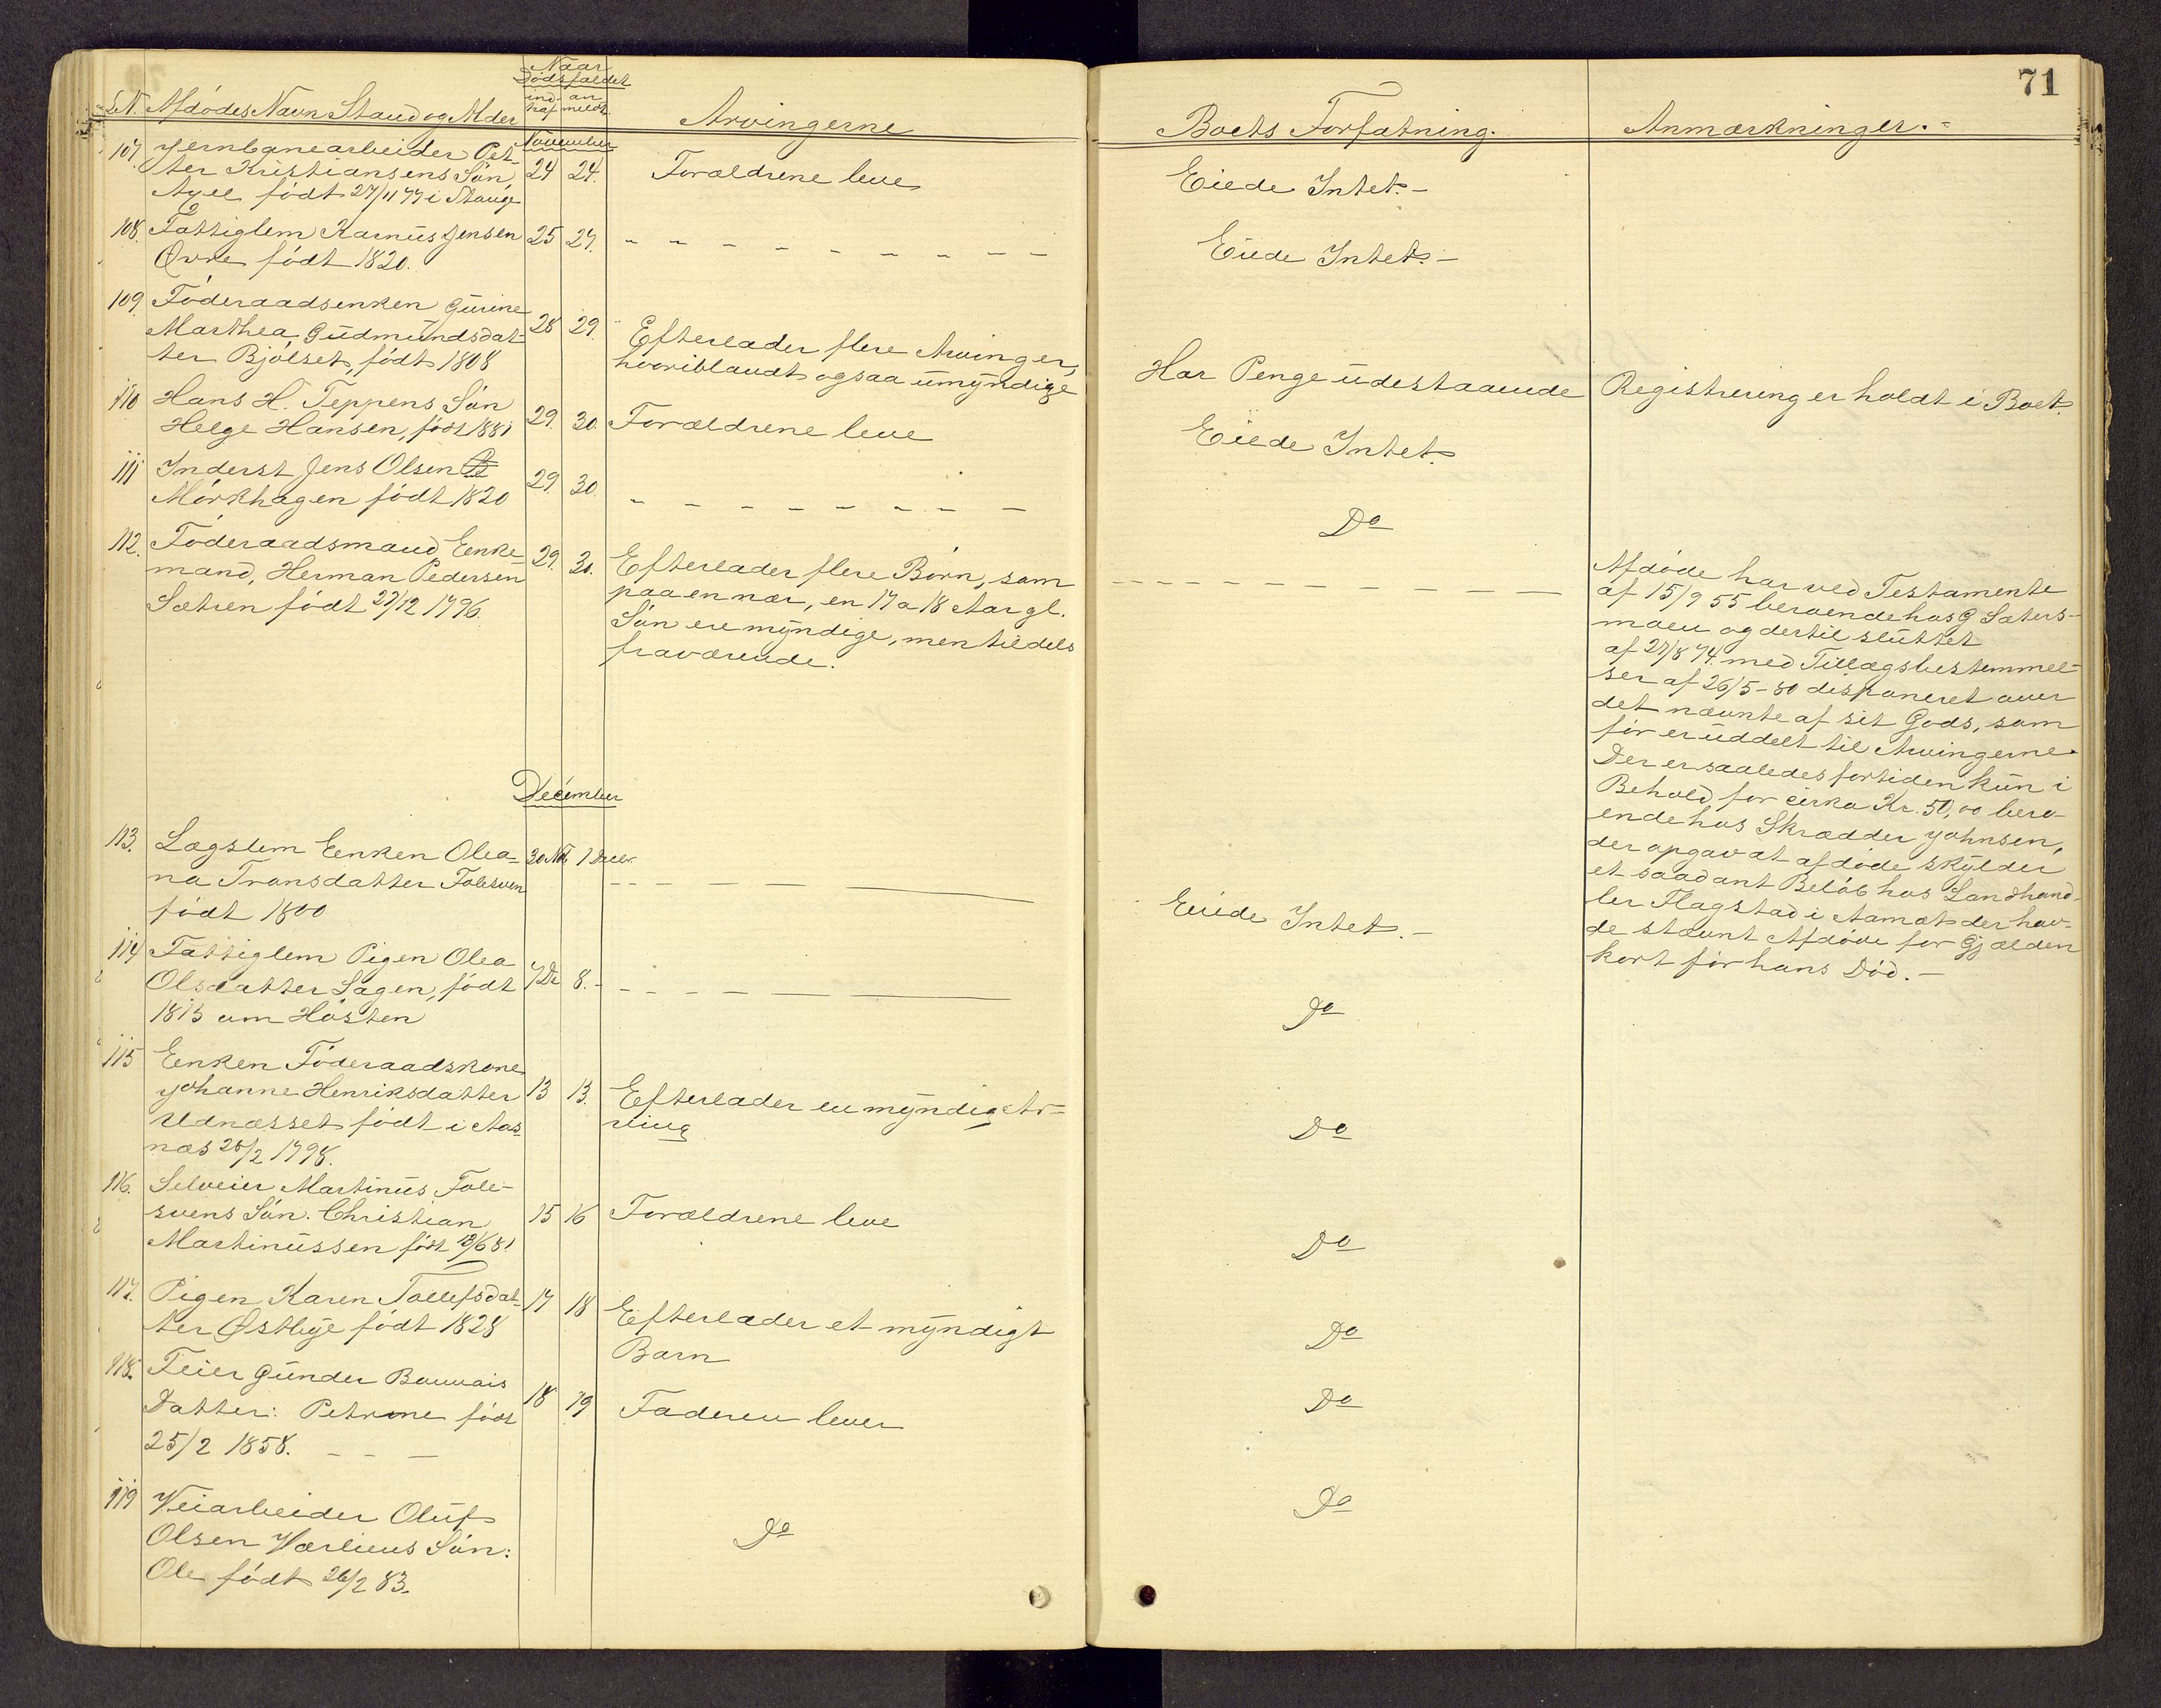 71
Naar
Dödsfaldet
ind- an
traf meldt
L.N. Afdødes Navn Stand og Alder
Arvingerne
Boets Forfatning.
Anmærkninger.-
November
107. Jernbanearbeider Pet-
ter Kristiansens Sön
Axel födt 27/11 77 i Stange
24 24.
Forældrene leve
Eiede Intet.-
108. Fattiglem Karnus Jensen
Øvre födt 1820.
25 27.
Eiede Intet.-
109. Föderaadsenken Gurine
Marthea Gudmundsdat-
ter Bjölset, födt 1808
28 29.
Efterlader flere Arvinger,
hvoriblandt ogsaa umyndige
Har Penge udestaaende
Registrering er holdt i Boet.
110 Hans H. Teppens Sön
Helge Hansen, födt 1881
29. 30.
Forældrene leve
Eiede Intet.
111 Inderst Jens Olsen
Mörkhagen födt 1820
29. 30.
Do
112. Föderaadsmand Enke-
mand, Herman Pedersen
Sætren födt 27/12 1796.
29. 30.
Efterlader flere Börn, som
paa en nær, en 17 a 18 Aar gl.
Sön ere myndige, men tildels
fraværende.
Afdöde har ved Testamente
af 15/9 55 beroende hos G Sæters-
moen og dertil sluttet
af 27/8 74. med Tillægsbestemmel-
ser af 26/5-80 disponeret over
det nævnte af sit Gods, som
för er uddelt til Arvingerne.
Der er saaledes fortiden kun i
Behold for cirka Kr. 50,00 bero-
ende hos Skrædder Johnsen,
der opgav at afdöde skylder
et saadant Belöb hos Landhand-
ler Flagstad i Aamot der hav-
de stævnt Afdöde for Gjælden
kort för hans Död.-
December
113. Lægslem Enken Olea-
na Tronsdatter Folesven
födt 1800
30 Nov. 1 Decbr.
Eiede Intet.-
114 Fattiglem Pigen Olea
Olsdatter Sagen, födt
1813 om Hösten
7 De 8.-
Do
115 Enken Föderaadskone
Johanne Henriksdatter
Udnæsset födt i Aas-
næs 28/2 1798.
13 13.
Efterlader en myndig Ar-
ving
Do
116. Selveier Martinus Fole-
svens Sön. Christian
Martinussen födt 18/6 81
15 16
Forældrene leve
Do
117. Pigen Karen Tollefsdat-
ter Østbye födt 1828
17 18
Efterlader et myndigt
Barn
Do
118. Feier Gunder Bauvais
Datter: Petrine födt
25/2 1858.
18 19
Faderen lever
Do
119 Veiarbeider Oluf
Olsen Værliens Sön:
Ole födt 26/2 83.
Do
Do